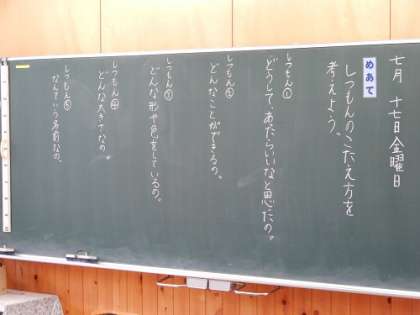 七月 十七日 金曜日
めあて
しつもんのこたえ方を
考えよう。
しつもん①
どうして、あたらいいなと思たの。
しつもん②
どんなことができるの。
しつもん③
どんな形や色をしているの。
しつもん④
どんな大きさなの。
しつもん⑤
なんていう名前なの。